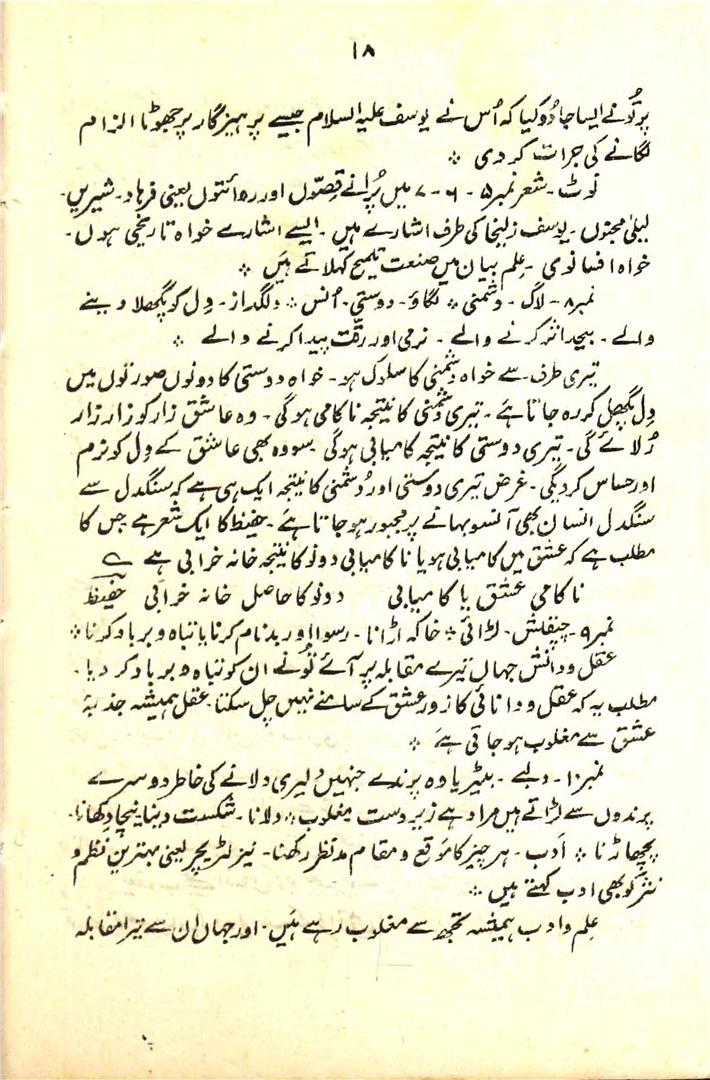 ۱۸
پر تُو نے ایسا جادُو کیا کہ اُس نے یوسف علیہ السلام جیسے پرہیزگار پر جھوٹا الزام
لگانے کی جرات کر دی ٭
نوٹ۔ شعر نمبر ۵ - ۶ - ۷ میں پُرانے قِصّوں اور روائتوں یعنی فرہاد۔ شیریں۔
لیلیٰ مجنوں۔ یوسف زلیخا کی طرف اشارے ہیں۔ ایسے اشارے خواہ تاریخی ہوں۔
خواہ افسانوی۔ عِلم بیان میں صنعت تلمیح کہلاتے ہَیں ٭
نمبر ۸۔ لاگ۔ دشمنی ٭ لگاؤ۔ دوستی۔ اُنس ٭ دلگداز۔ دِل کو پگھلا دینے
والے۔ بیحد اثر کرنے والے۔ نرمی اور رقّت پیدا کرنے والے ٭
تیری طرف سے خواہ دشمنی کا سلوک ہو۔ خواہ دوستی کا دونوں صورتوں میں
دِل پگھل کر رہ جاتا ہَے۔ تیری دُشمنی کا نتیجہ ناکامی ہو گی۔ وہ عاشق زار کو زار زار
رُلائے گی۔ تیری دوستی کا نتیجہ کامیابی ہو گی سو وہ بھی عاشق کے دِل کو نرم
اور حساس کر دیگی۔ غرض تیری دوستی اور دُشمنی کا نتیجہ ایک ہی ہے کہ سنگدل سے
سنگدل انسان بھی آنسو بہانے پر مجبور ہو جاتا ہَے۔ حفیظ کا ایک شعر ہے جس کا
مطلب ہے کہ عشق میں کامیابی ہو یا ناکامیابی دونو کا نتیجہ خانہ خرابی ہے ؎
ناکامیِ عشق یا کامیابی دونو کا حاصل خانہ خرابی حفیظ
نمبر ۹۔ چپقلش۔ لڑائی ٭ خاکہ اڑانا۔ رسوا اور بدنام کرنا یا تباہ و برباد کرنا ٭
عقل و دانش جہاں تیرے مقابلہ پر آئے تُو نے ان کو تباہ و برباد کر دیا۔
مطلب یہ کہ عقل و دانائی کا زور عشق کے سامنے نہیں چل سکتا۔ عقل ہمیشہ جذبۂ
عشق سے مغلوب ہو جاتی ہَے ٭
نمبر ۱۰۔ دبے۔ بٹیر یا وہ پرندے جنہیں دلیری دلانے کی خاطر دوسرے
پرندوں سے لڑاتے ہیں مراد ہے زیردست مغلوب ٭ دلانا۔ شکست دینا نیچا دِکھانا۔
پچھاڑنا ٭ اَدب۔ ہر چیز کا موقع و مقام مدنظر رکھنا۔ نیز لٹریچر یعنی بہترین نظم و
نثر کو بھی ادب کہتے ہیں ٭
عِلم و ادب ہمیشہ تجھ سے مغلوب رہے ہَیں۔ اور جہاں ان سے تیرا مقابلہ